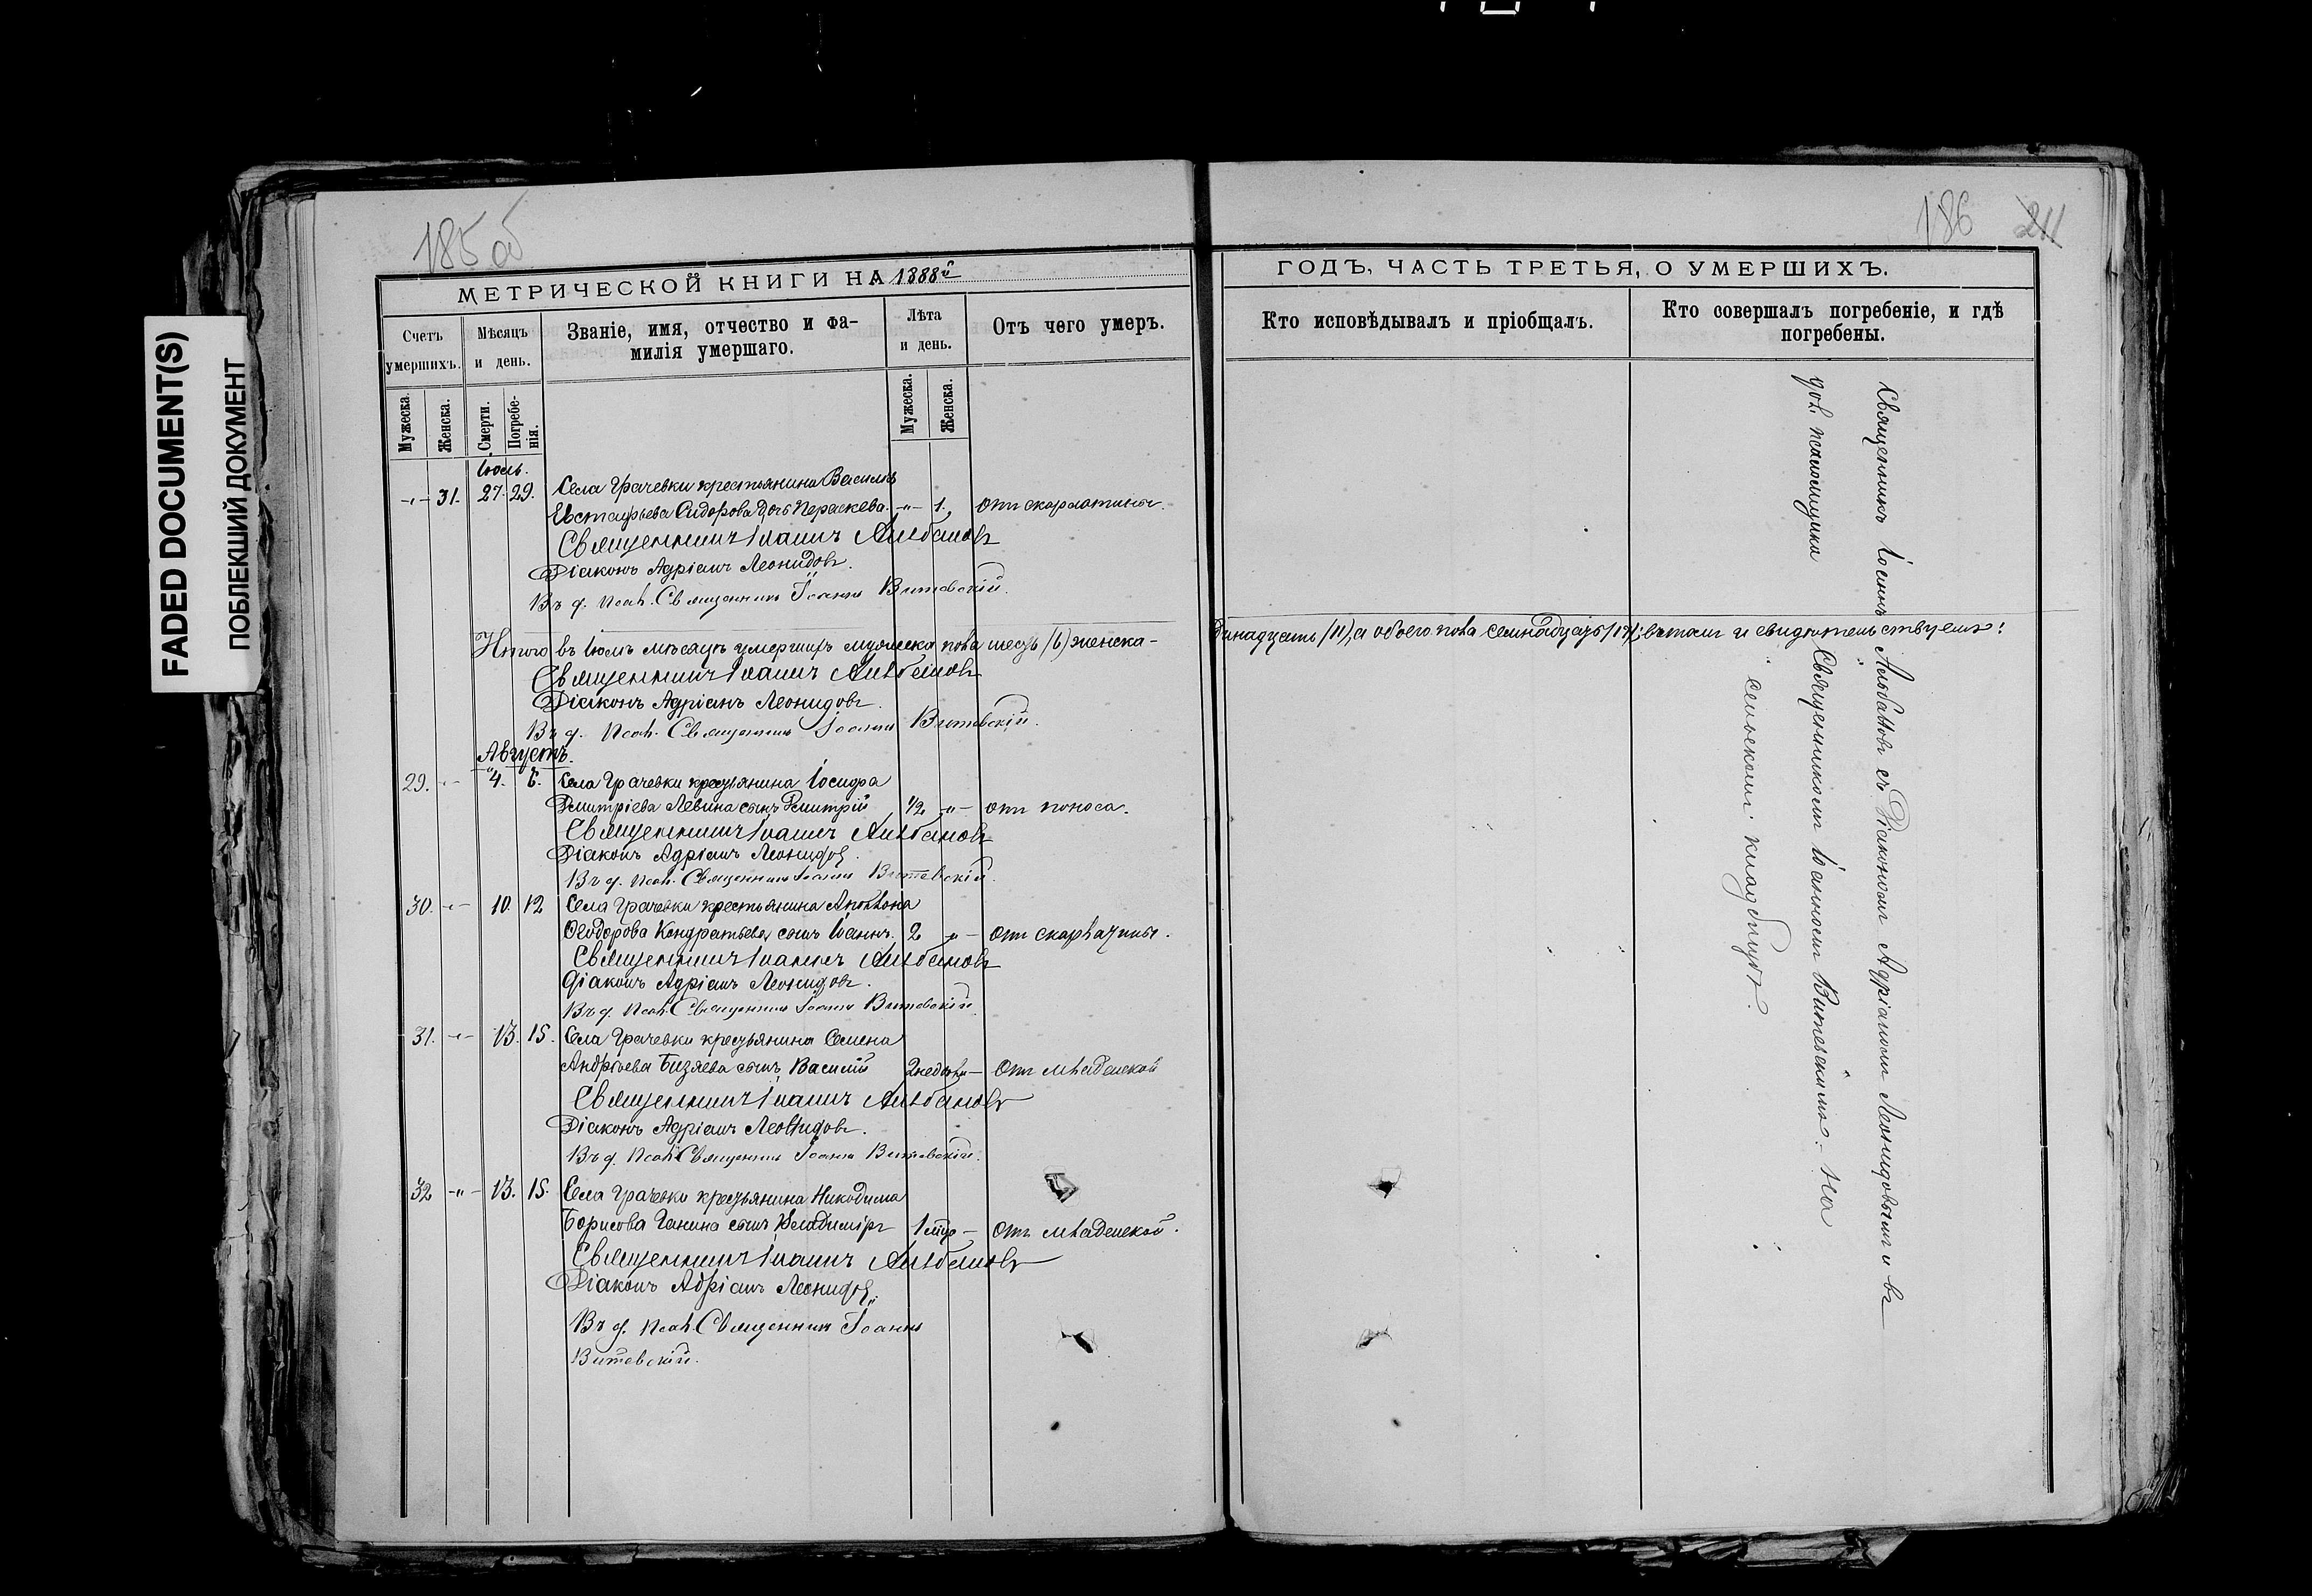 FADED DOCUMENT(S)
ПОБЛЕКШИЙ ДОКУМЕНТ
185 об
МЕТРИЧЕСКОЙ КНИГИ НА 1888й
Счетъ умершихъ.
Мѣсяцъ и день.
Званіе, имя, отчество и фа-
милія умершаго.
Лѣта и день.
Отъ чего умеръ.
Мужеска.
Женска.
Смерти.
Погребе-
нія.
Мужеска.
Женска.
Іюль.
-"- 31. 27. 29. Села Грачевки крестьянина Василія
Евстафьева Сидорова дочь Параскева. -"- 1. отъ скарлатины.
Священникъ Іоаннъ Альбановъ
Діаконъ Адріанъ Леонидовъ.
Въ д. псал. Священникъ Іоаннъ Витевскій.
Итого въ Іюлѣ мѣсяцѣ умершихъ мужеска пола шесть (6) женска-
Священникъ Іоаннъ Альбановъ
Діаконъ Адріанъ Леонидовъ.
Въ д. псал. Священникъ Іоаннъ Витевскій.
Августъ.
29. -"- 4. 6. Села Грачевки крестьянина Іосифа
Дмитріева Левина сынъ Дмитрій 1/2 -"- отъ поноса.
Священникъ Іоаннъ Альбановъ
Діаконъ Адріанъ Леонидовъ.
Въ д. псал. Священникъ Іоаннъ Витевскій.
30. -"- 10. 12 Села Грачевки крестьянина
Ѳеодорова Кондратьева сынъ Іоаннъ. 2 -"- отъ скарлатины.
Священникъ Іоаннъ Альбановъ
Діаконъ Адріанъ Леонидовъ.
Въ д. псал. Священникъ Іоаннъ Витевскій.
31. -"- 13. 15. Села Грачевки крестьянина Семена
Андреева Бизяева сынъ Василій 2 недѣли - отъ младенской
Священникъ Іоаннъ Альбановъ
Діаконъ Адріанъ Леонидовъ.
Въ д. псал. Священникъ Іоаннъ Витевскій.
32 -"- 13. 15. Села Грачевки крестьянина Никодима
Борисова Ганина сынъ Владиміръ - отъ младенской.
Священникъ Іоаннъ Альбановъ
Діаконъ Адріанъ Леонидовъ.
Въ д. псал. Священникъ Іоаннъ
Витевскій.
186 211
ГОДЪ, ЧАСТЬ ТРЕТЬЯ, О УМЕРШИХЪ.
Кто исповѣдывалъ и пріобщалъ.
Кто совершалъ погребеніе, и гдѣ
погребены.
динадцать (11), а обоего пола семнадцать (17); въ томъ и свидѣтельствуемъ:
Священникъ Іоаннъ Альбановъ съ Діакономъ Адріаномъ Леонидовымъ и въ
дол. псаломщика Священникомъ Іоанномъ Витевскимъ. На
сельскомъ кладбищѣ.